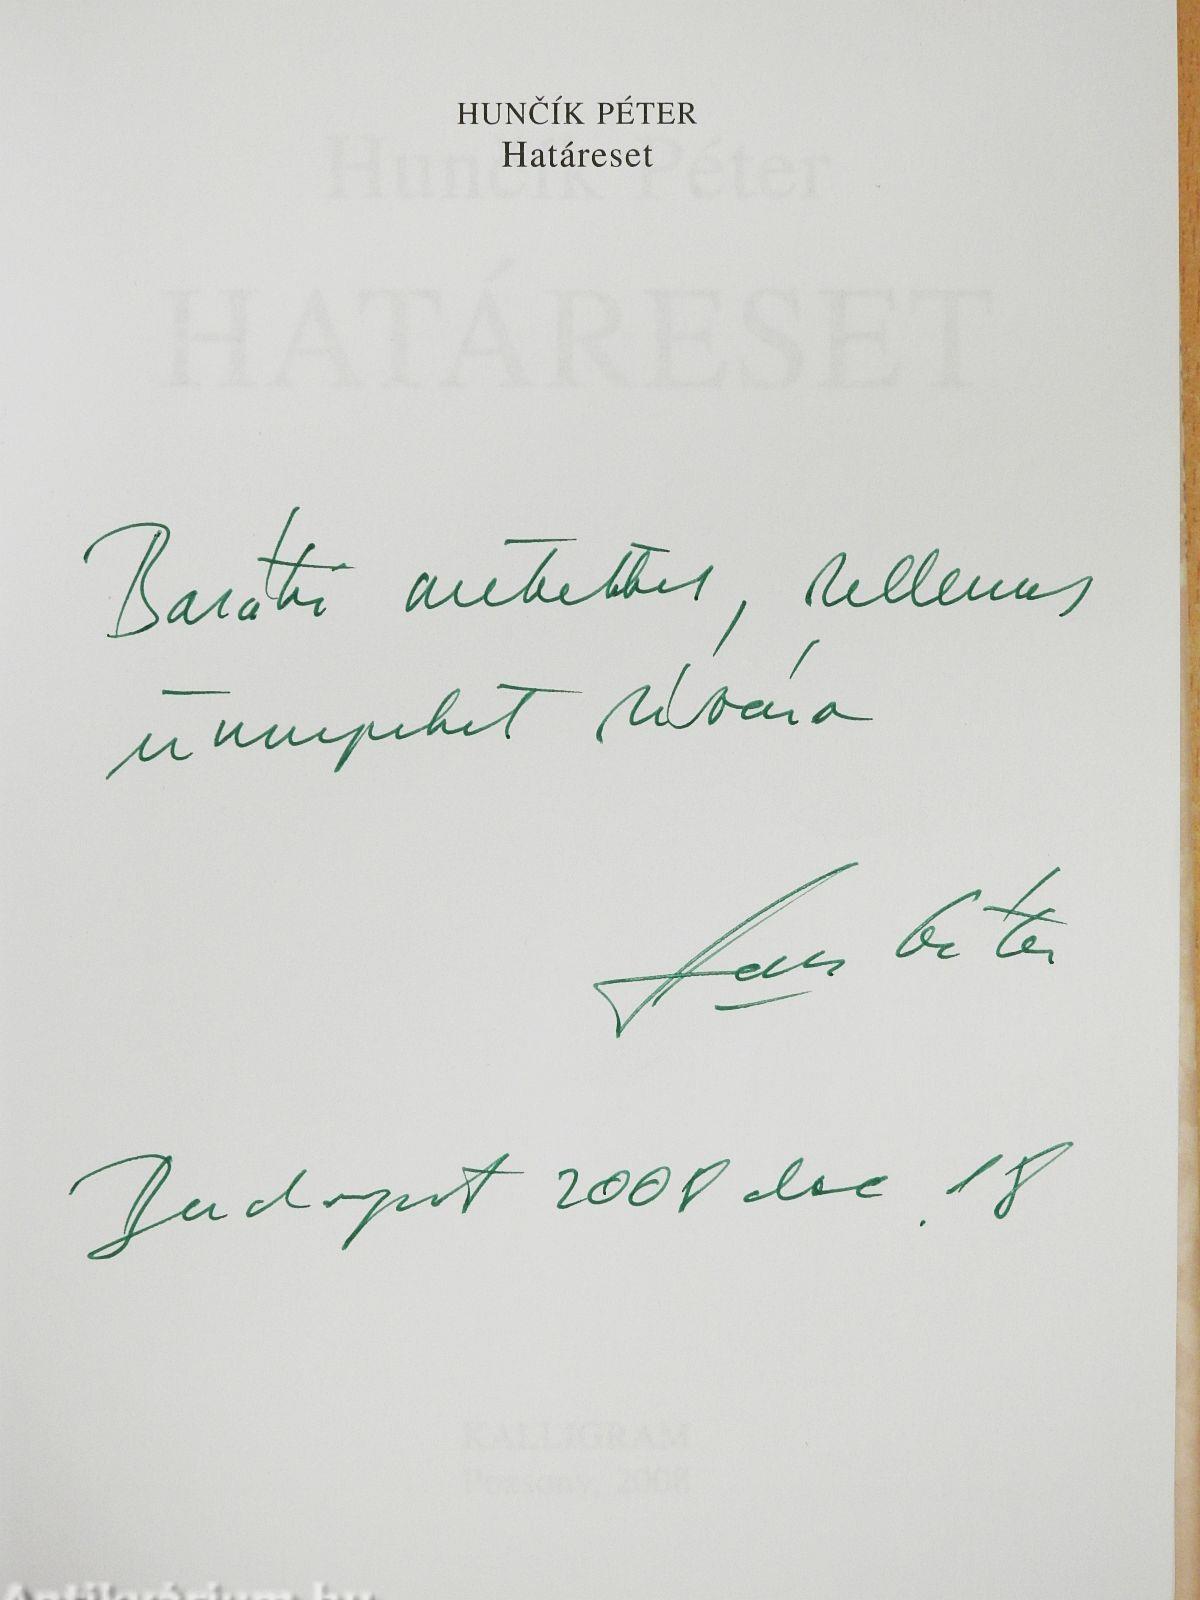 HUNČÍK PÉTER
Határeset
Hunčík Péter
HATÁRESET
Baráti szeretettel, kellemes
ünnepeket kívánva
Péter
Budapest 2008 dec. 18
KALLIGRAM
Pozsony, 2008
Antikvárium.hu